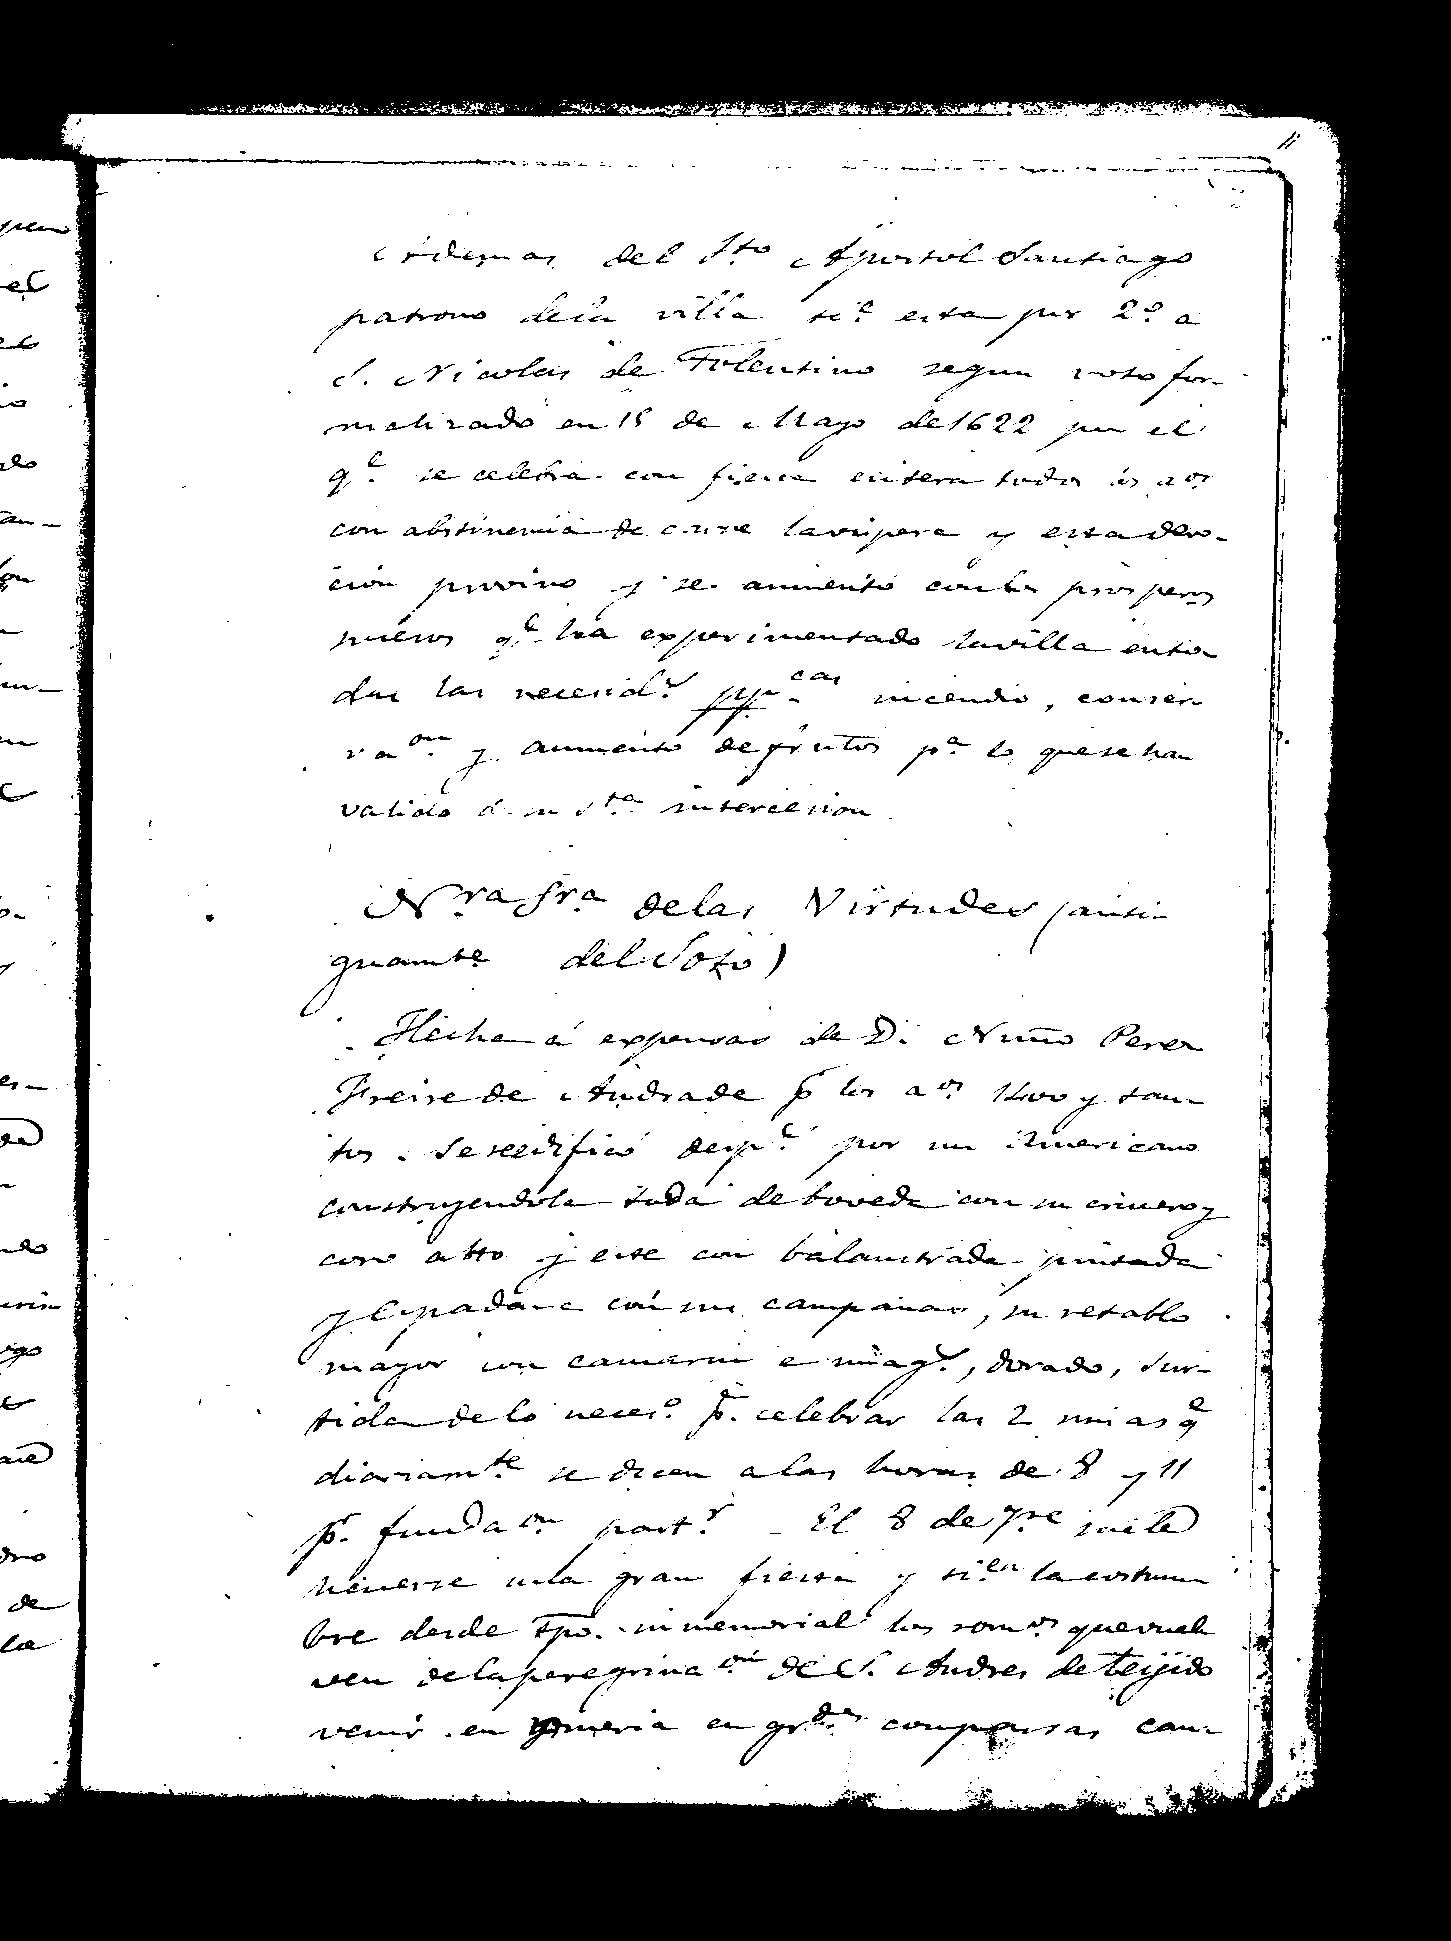 11
Ademas del Sto Apostol Santiago
patrono dela villa tie esta por 2º a
S. Nicolas de Tolentino segun voto for-
malizado en 15 de Mayo de 1622 por el
qe se celebra con fiesta entera todos os aos
con abstinencia de carne la vispera y esta devo-
cion provino y se aumentó con los prosperos
sucesos qe ha experimentado la villa en to-
das las necesids ppcas incendio, conser-
vaon y aumento de frutos pa lo que se han
valido d su sta intercesion.
Nra Sra de las Virtudes (anti-
guamte del Soto)
Hecha á expensas de D. Nuño Perez
Freire de Andrade p los aos 1400 y tan-
tos. Se reedificó desps por un Americano
construyendola toda de boveda con su crucero y
coro alto y este con balaustrada pintada
y espadana con sus campanas, su retablo
mayor con camarin e imags, dorado, sur-
tida de lo neceso pa celebrar las 2 misas qe
diariamte se dicen a las horas de 8 y 11
pr fundaon partr - El 8 de 7re suele
hacerse una gran fiesta y tien la costum-
bre desde tpo. inmemorial los romos que vuel-
ven de la peregrinaon de S. Andres de Teijido
venir en romeria en grdes comparsas can-